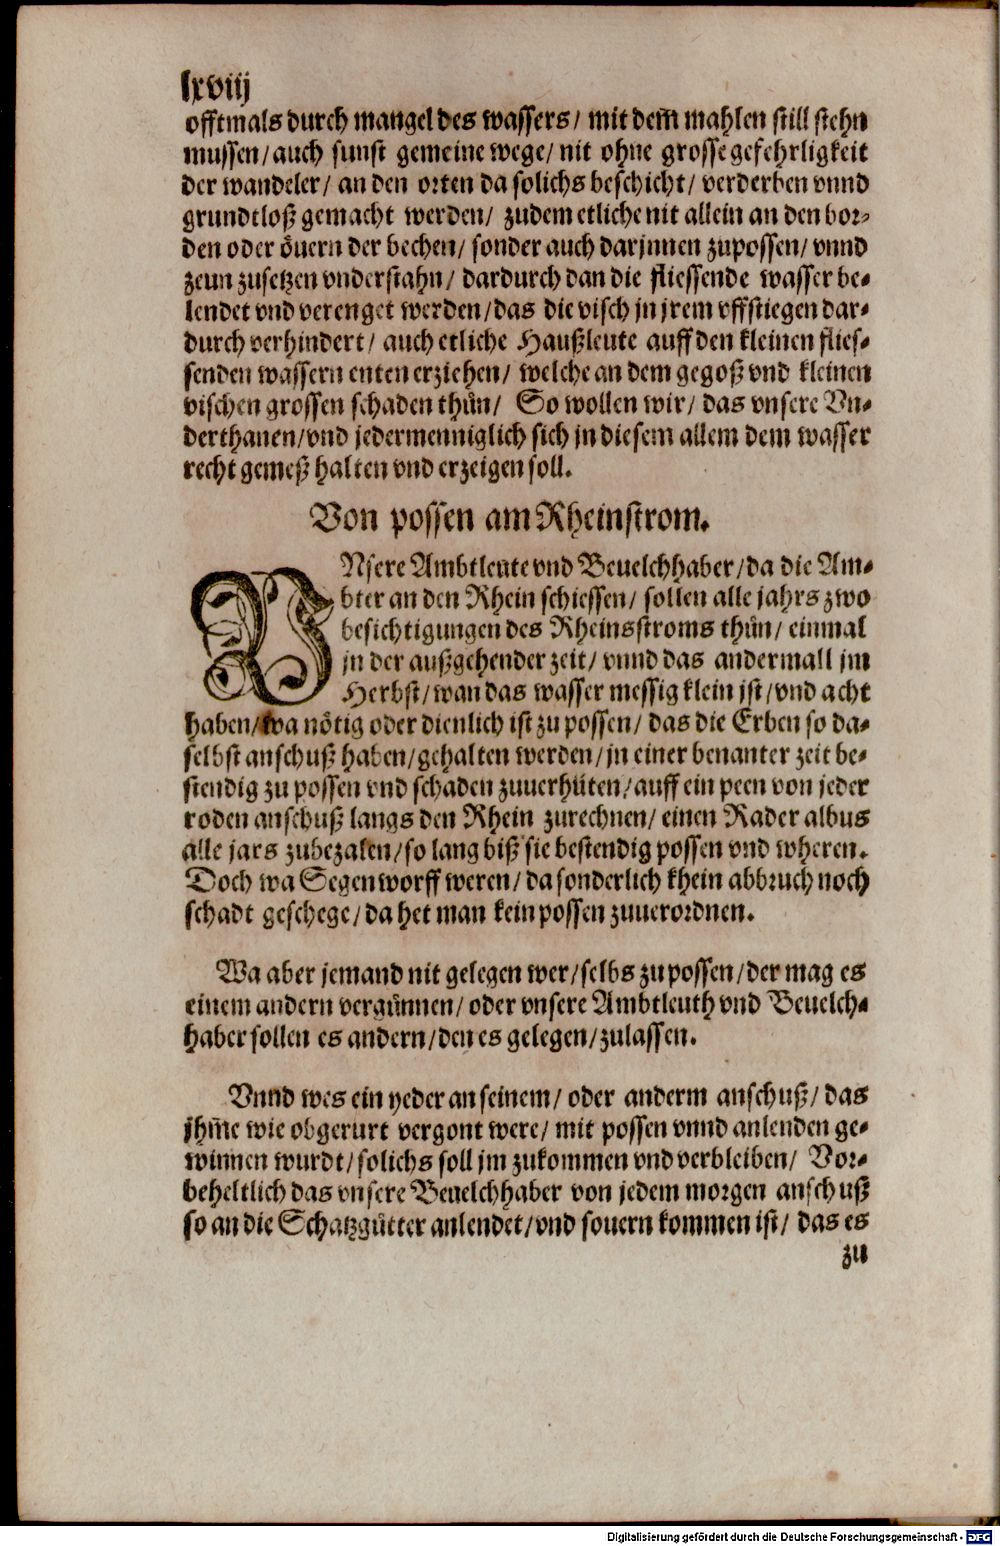 lxviij
offtmals durch mangel des wassers/ mit dem̃ mahlen still stehn
mussen/ auch sunst gemeine wege/ nit ohne grosse gefehrligkeit
der wandeler/ an den orten da solichs beschicht/ verderben vnnd
grundtloß gemacht werden/ zudem etliche nit allein an den bor-
den oder öuern der bechen/ sonder auch darjnnen zupossen/ vnnd
zeun zusetzen vnderstahn/ dardurch dan die fliessende wasser be-
lendet vnd verenget werden/ das die visch jn jrem vffstiegen dar-
durch verhindert/ auch etliche Haußleute auff den kleinen flies-
senden wassern enten erziehen/ welche an dem gegoß vnd kleinen
vischen grossen schaden thůn/ So wollen wir/ das vnsere Vn-
derthanen/ vnd jedermenniglich sich jn diesem allem dem wasser
recht gemeß halten vnd erzeigen soll.
Von possen am Rheinstrom.
VNsere Ambtleute vnd Beuelchhaber/ da die Am-
bter an den Rhein schiessen/ sollen alle jahrs zwo
besichtigungen des Rheinsstroms thůn/ einmal
jn der außgehender zeit/ vnnd das andermall jm
Herbst/ wan das wasser messig klein jst/ vnd acht
haben/ wa nötig oder dienlich ist zu possen/ das die Erben so da-
selbst anschuß haben/ gehalten werden/ jn einer benanter zeit be-
stendig zu possen vnd schaden zuuerhüten/ auff ein peen von jeder
roden anschuß langs den Rhein zurechnen/ einen Rader albus
alle jars zubezalen/ so lang biß sie bestendig possen vnd wheren.
Doch wa Segen worff weren/ da sonderlich khein abbruch noch
schadt geschege/ da het man kein possen zuuerordnen.
Wa aber jemand nit gelegen wer/ selbs zu possen/ der mag es
einem andern vergůnnen/ oder vnsere Ambtleuth vnd Beuelch-
haber sollen es andern/ den es gelegen/ zulassen.
Vnnd wes ein yeder an seinem/ oder anderm anschuß/ das
jhm̃e wie obgerurt vergont were/ mit possen vnnd anlenden ge-
winnen wurdt/ solichs soll jm zukommen vnd verbleiben/ Vor-
beheltlich das vnsere Beuelchhaber von jedem morgen anschuß
so an die Schatzgůtter anlendet/ vnd souern kommen ist/ das es
zu
Digitalisierung gefördert durch die Deutsche Forschungsgemeinschaft - DFG